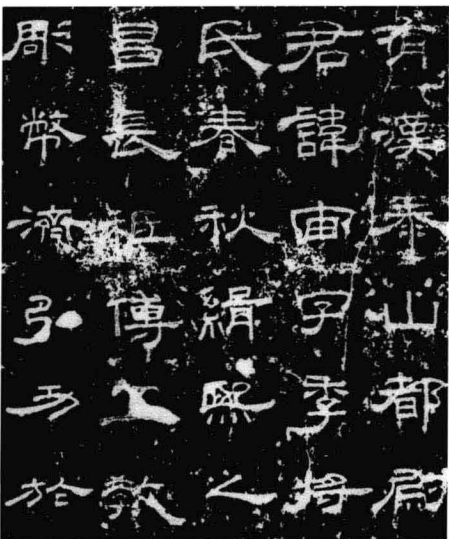 有漢泰山都尉
君諱宙字季將
氏春秋緝熙之
昌長祗傅教
彫幣濟弘功於